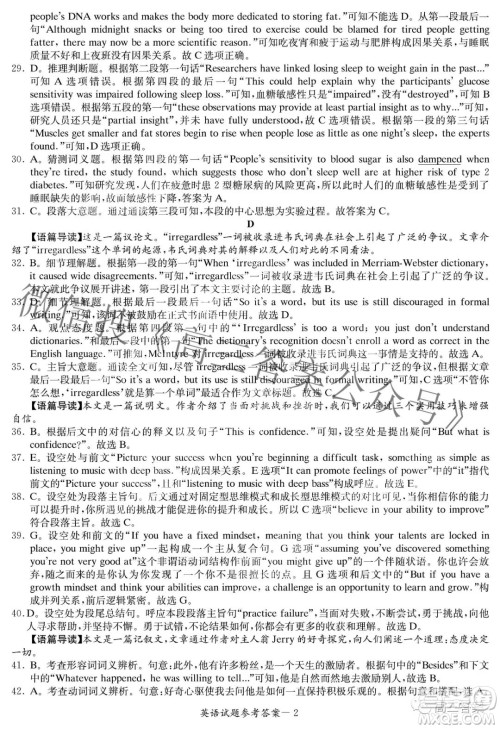 people's DNA works and makes the body more dedicated to storing fat."可知选D。从第一段最后一
句"Although midnight snacks or being too tired to exercise could be blamed for tired people getting
fatter, there may be a more scientific reason."可知吃夜宵和疲于运动与肥胖构成因果关系，与睡眠
质量不构成因果关系。故选D。
29. D。推理判断题。根据第二段第一句话"Researchers have linked losing sleep to weight gain in the past..."
可知A选项错误。根据第四段的最后一句"This could help explain why the participants' glucose
sensitivity was impaired following sleep loss."可知，血糖敏感性受损，并没有"destroyed"，可知B
选项错误。根据第四段的第一句"these observations may provide at least partial insight as to why..."可知，
研究人员还只是"partial insight"，并未 fully discovered，可知C选项错误。根据第三段的第三句话
"Muscles get smaller and fat stores begin to rise when people lose as little as one night's sleep, the experts
found."可知，D选项正确。
30. A。猜测词义题。根据第四段的第一句话"People's sensitivity to blood sugar is also dampened when
they're tired, the study found, which suggests those who don't sleep enough are at a higher risk of type 2
diabetes."可知研究发现，人们在疲惫时患2型糖尿病的风险更高，所以此时人们的血糖敏感性是受到
了损害，敏感性下降，答案为A。
31. C。段落大意题。通过通读第三段可知，本段的中心思想为实验过程。故答案为C。
D
【语篇导读】这是一篇议论文。"irregardless"一词被收录进韦氏词典在社会上引起了广泛的争议。文章通
过"irregardless"这个单词的起源，韦氏词典对其的解释以及人们对此的看法来展开对此现象的探讨。
32. B。细节理解题。根据第一段的句子"When 'irregardless' was included in Merriam-Webster dictionary,
it caused wide disagreements."可知，"irregardless"一词被收录进韦氏词典在社会上引起了广泛的争议。
本文就此争议展开讲述，第一段引出了本文主要讨论的主题。故选B。
33. D。细节理解题。根据最后一段的句子"So it's a word, but its use is still discouraged in formal
writing."可知，词典不鼓励使用在正式书面语中使用。故选D。
34. A。观点态度题。根据第二段中的"' Irregardless' is too a word; you just don't understand
dictionaries."和最后一段的第一句"The dictionary's recognition doesn't enroll a word as correct in the
English language."可推知，McIntyre 对 irregardless 一词被收录进韦氏词典这一事情是支持的。故选A。
35. C。主旨大意题。通读全文可知，尽管 irregardless 一词被收录进了韦氏词典，但根据文章
最后一段最后一句"So it's a word, but its use is still discouraged in formal writing."可知，C选项"不管
你怎么想，'irregardless'就是一个单词"最适合做标题。故选C。
【语篇导读】本文是一篇说明文。作者介绍了当面对挑战和挫折时，我们可以采用哪些实用技巧来增强自
信。
36. B。根据后文中对自信心的释义以及句子"This is confidence."可知，设空处是提出疑问"But what is
confidence?"。故选B。
37. E。设空处与前文"Picture your success when you're beginning a difficult task, something as simple as
listening to music with deep bass."构成因果关系。E选项"It can make us feel more powerful"中的"it"指代
前文的"Picture your success"，"listening to music with deep bass"，构成因果关系。故选E。
38. C。设空处为段落主旨句。后文通过对固定型思维模式和成长型思维模式的对比可见，当你相信你的能力
可以提升的时候，你遇见的挑战和挫折也变成了你学习和成长的机会。所以C选项"believe in your
ability to improve"符合文意。故选C。
39. G。设空处和前文的"If you have a fixed mindset, meaning that you think your talents are locked in
place, you might give up"一起构成一个主从复合句。G选项"thinking you've discovered something
you're not very good at"是"you might give up"的一个伴随状语。与后文"But if you have a growth
mindset and think your abilities can improve, a challenge is instead seen as an opportunity to learn and
grow"构成并列关系。故选G。
40. D。设空处为段尾总结句。呼应本段段落主旨句"practice failure"，当面对失败，不断尝试，勇于面对，向
他人寻求帮助，即大胆试错，勇于试错，不论结果如何，你都会变得更加强大。故选D。
【语篇导读】本文是一篇记叙文，文章通过作者对主人翁 Jerry 的好奇探究，向大家传达一个道理：态度决定
一切。
41. B。考查形容词词义辨析。句意：此外，他有许多粉丝，他是一个天生的激励者。根据句中的"Besides"和下文
中的"Whatever happened, he was willing to tell..."可知，他是自然而然地去激励他人。故选B。
42. A。考查动词词义辨析。句意：无论发生什么，他总是愿意告诉他们如何一直积极乐观。根据前文可知，
英语试题参考答案—2